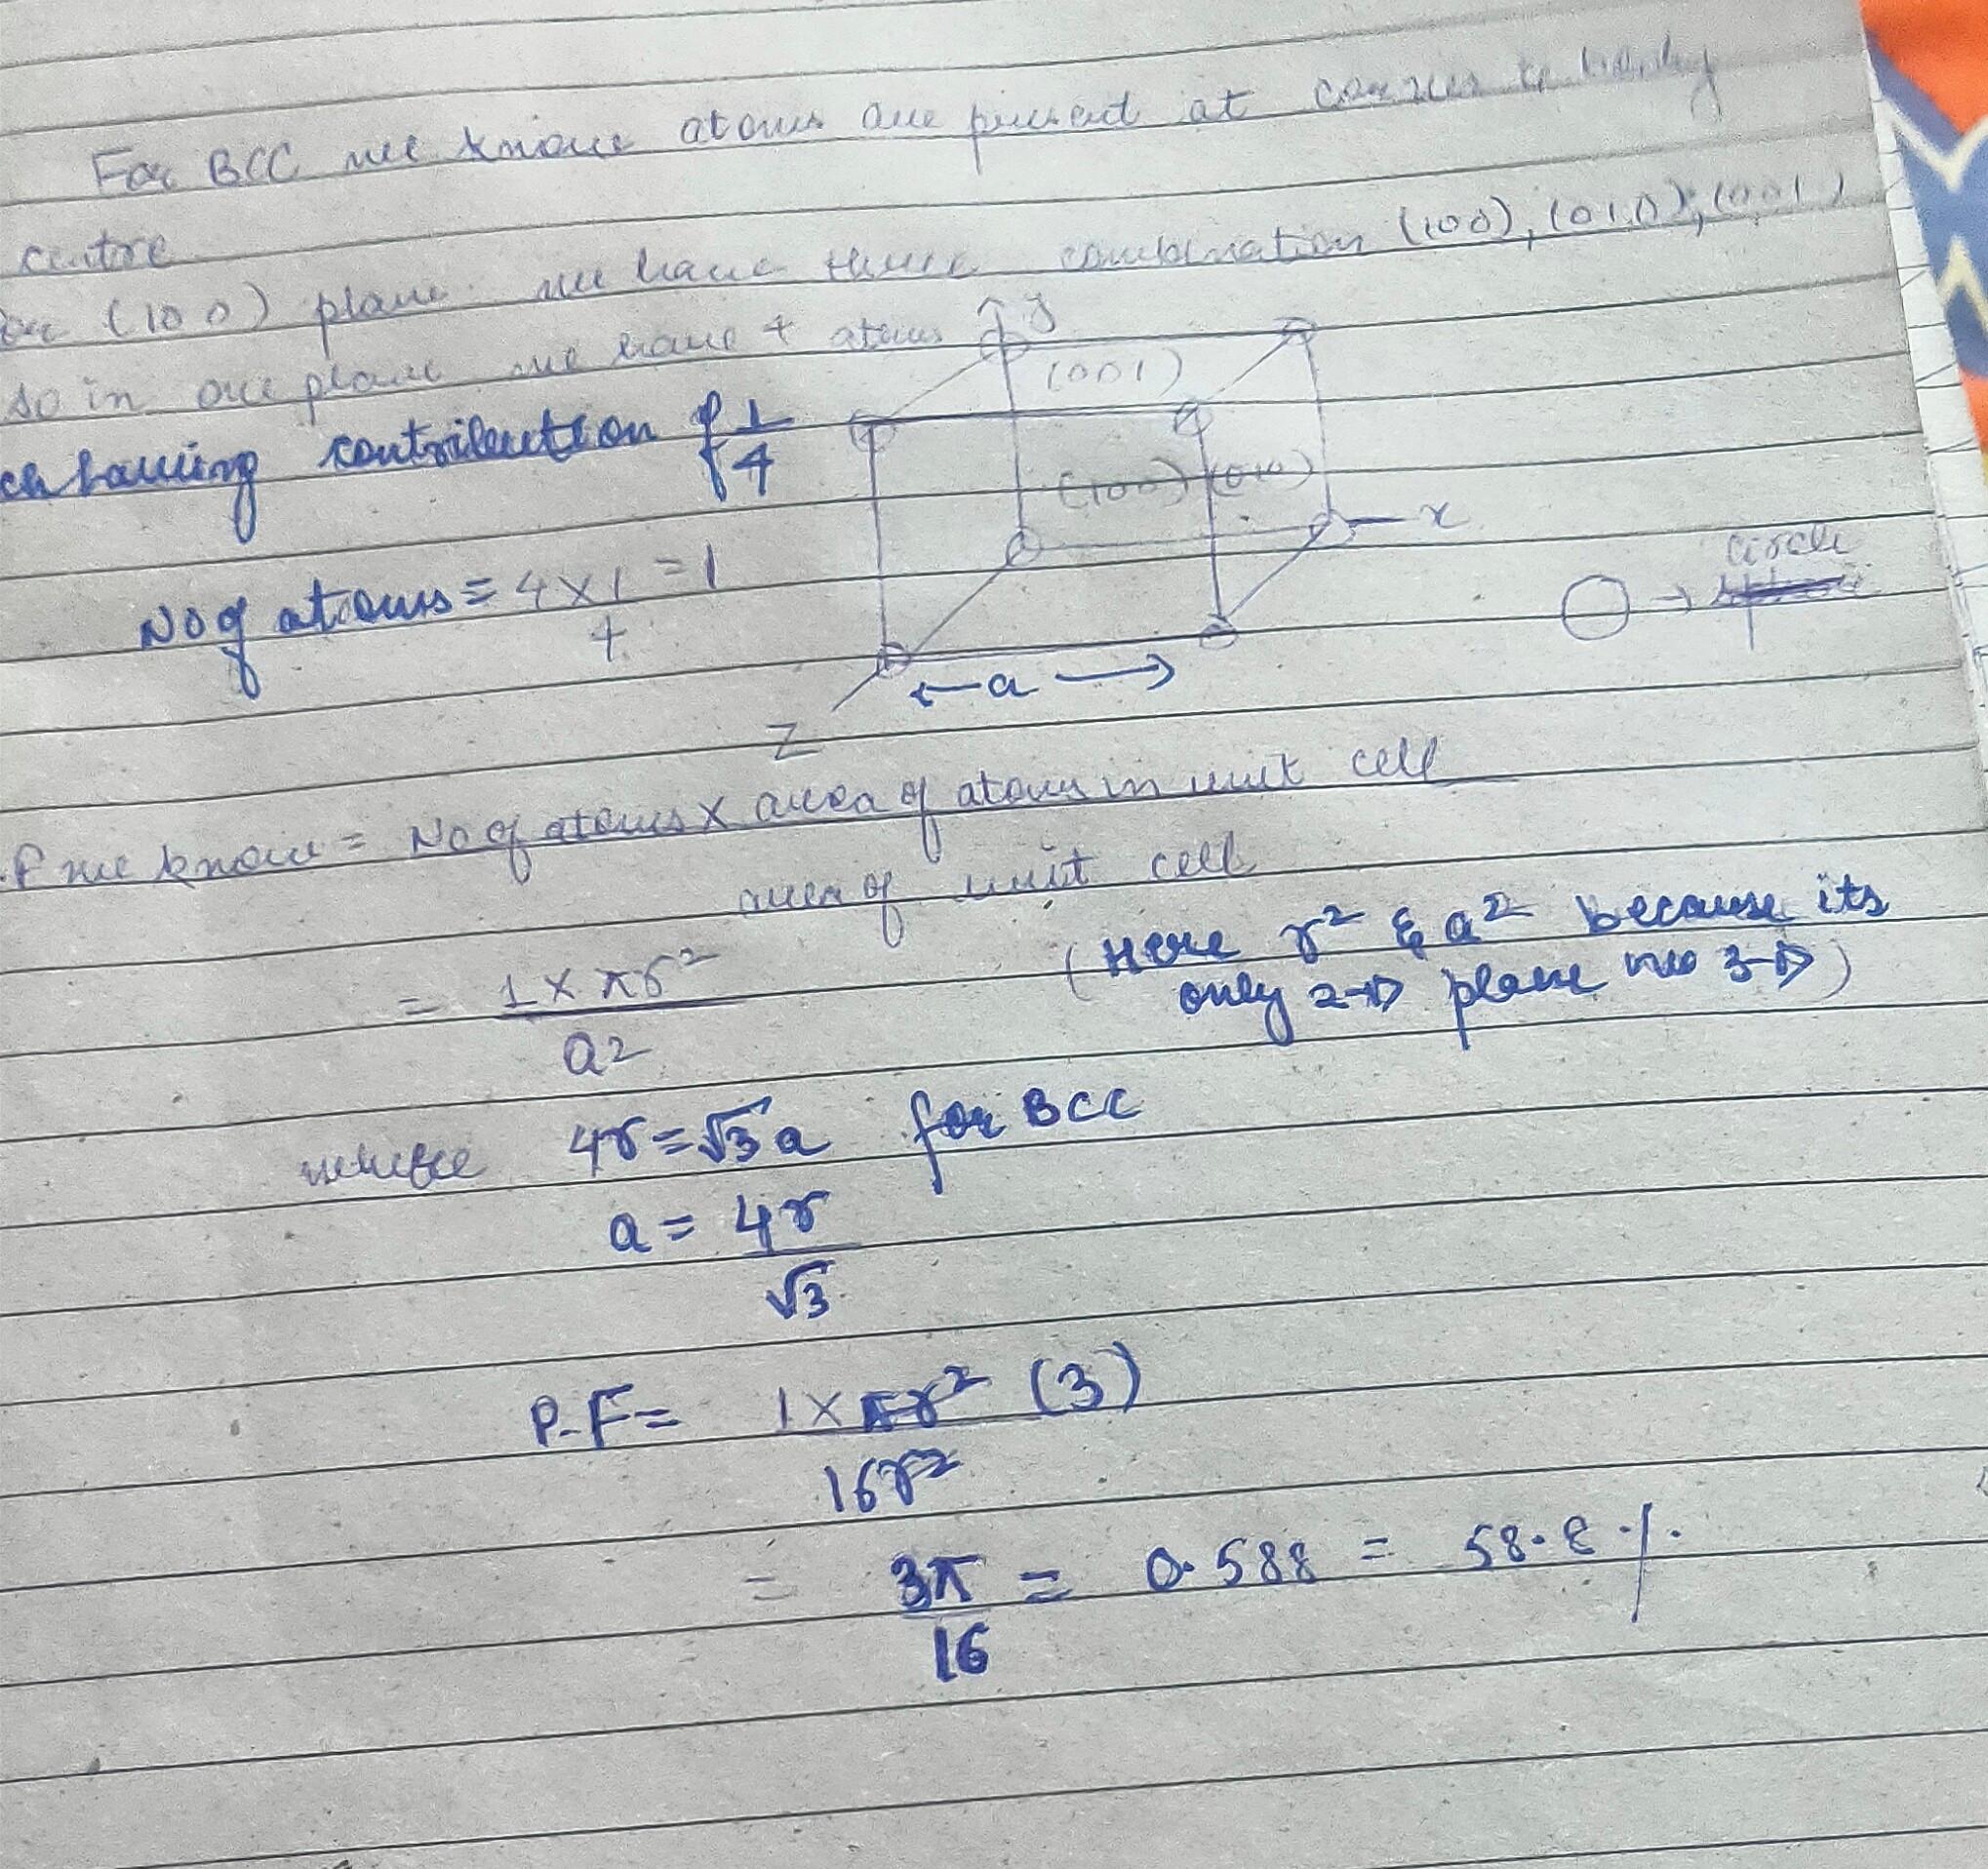 For BCC we know atoms are present at corners & body
centre
(100) plane we have three combination (100), (010), (001)
so in one plane we have 4 atoms
having contribution of 1/4
No of atoms = 4 × 1/4 = 1
y
(001)
(100) (010)
x
circle
← a →
Z
P.F we know = No of atoms × area of atoms in unit cell
area of unit cell
= 1 × πr²
a²
(Here r² & a² because its
only 2-D plane no 3-D)
where 4r = √3 a for BCC
a = 4r
√3
P.F = 1 × πr² (3)
16r²
= 3π/16 = 0.588 = 58.8 %